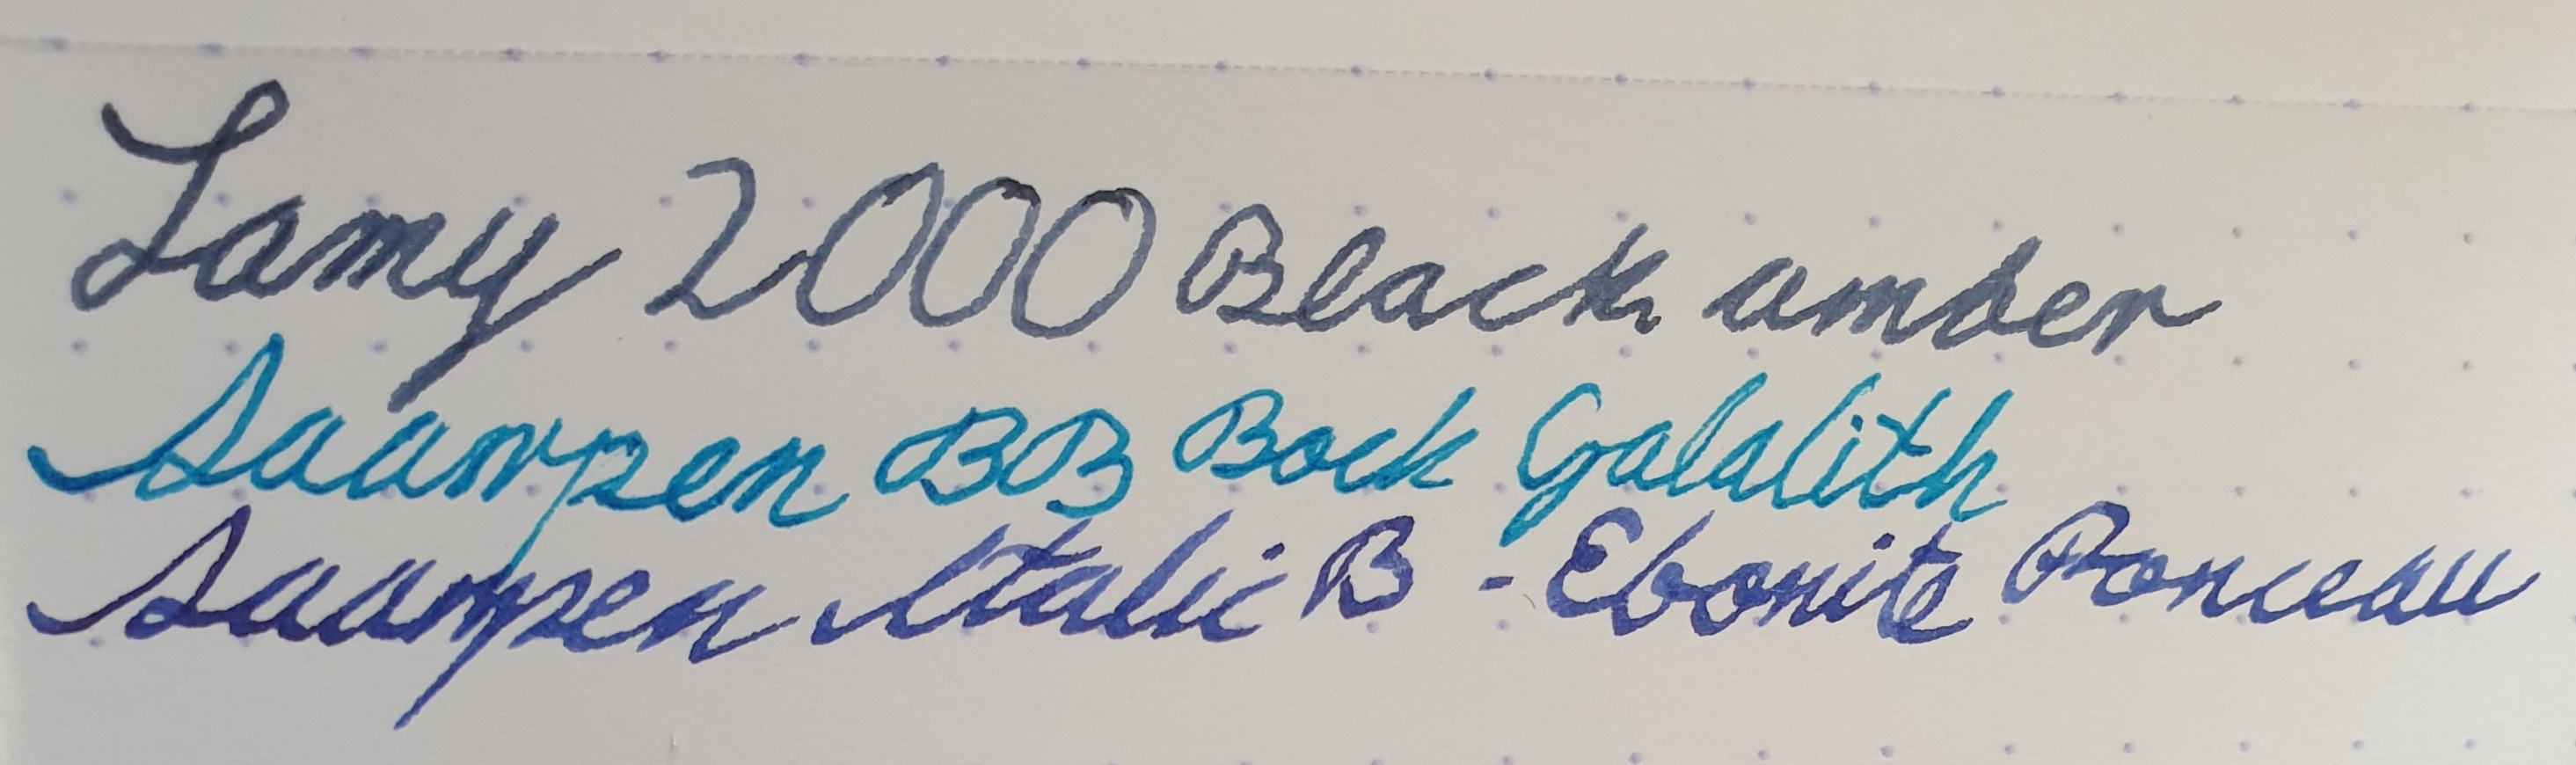 Lamy 2000 Black amber
Saarpen BB Bock Galalith
Saarpen Italic B - Ebonite Ponceau